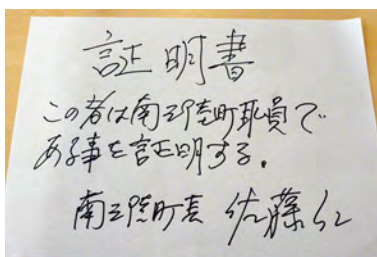 証明書
この者は南三陸町職員で
ある事を証明する。
南三陸町長 佐藤仁